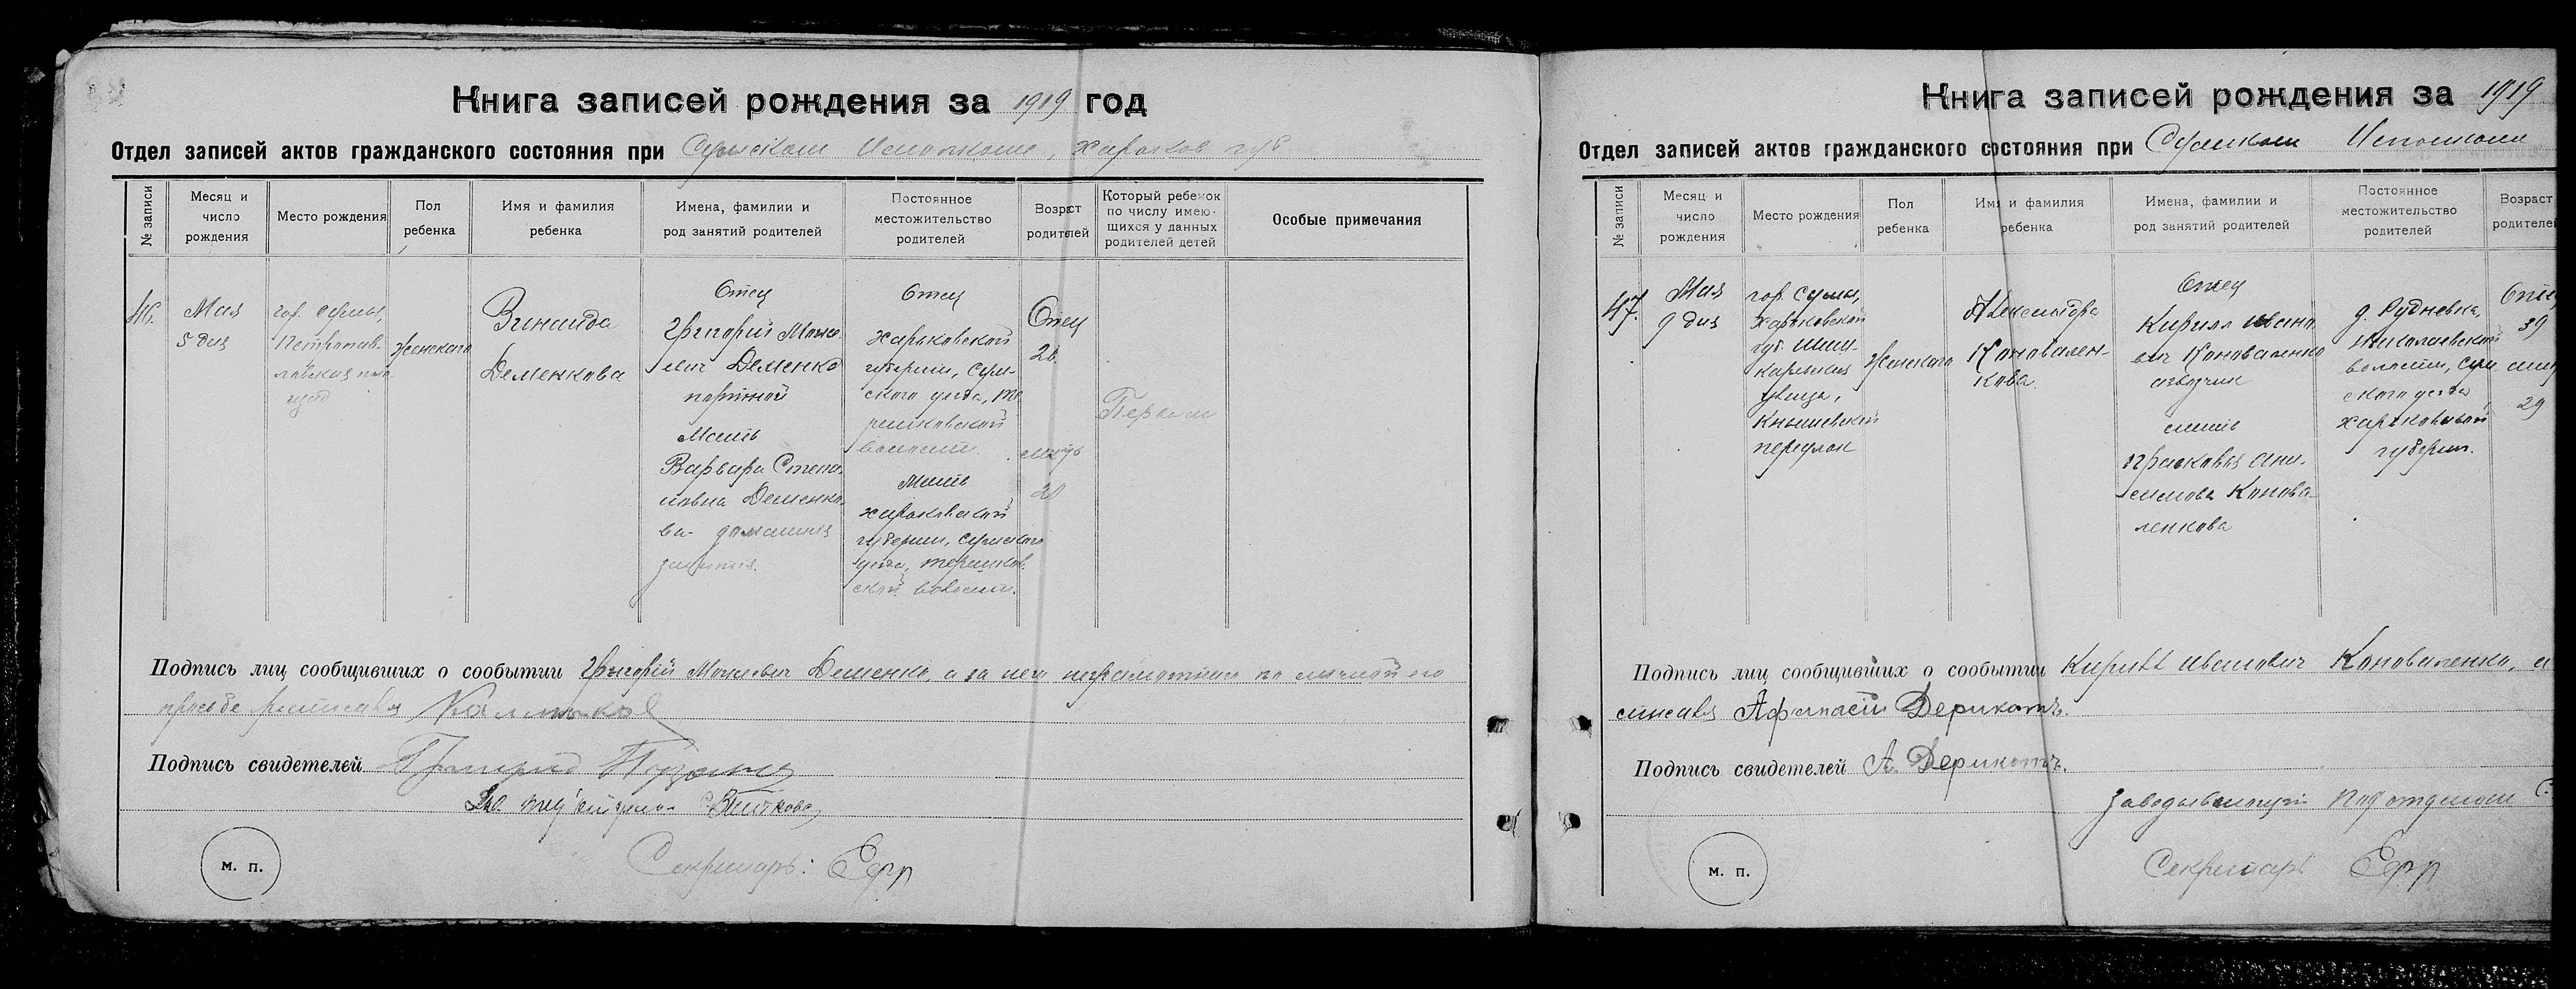 Книга записей рождения за 1919 год
Отдел записей актов гражданского состояния при Сумском Исполкоме, Харьков губ
№ записи
Месяц и
число
рождения
Место рождения
Пол
ребенка
Имя и фамилия
ребенка
Имена, фамилии и
род занятий родителей
Постоянное
местожительство
родителей
Возраст
родителей
Который ребенок
по числу имею-
щихся у данных
родителей детей
Особые примечания
46.
Мая
5 дня
гор. Сумы,
Петропав-
ловская
Женского
Зинаида
Деменкова
Отец
Григорий
евич Деменко
портной
Мать
Варвара Степа-
новна Деменко-
ва домашния
занятия.
Отец
Харьковской
губернии, Сум-
ского уезда, те-
решковской
волости.
Мать
Харьковской
губернии, Сумского
уезда, терешков-
ской волости.
Отец
26.
мать
20
Первый
Подпись лиц сообщивших о сообытии Григорій Деменко, а за него неграмотного по личной его
просьбе росписался
Подпись свидетелей
Секретарь:
м. п.
Книга записей рождения за 1919
Отдел записей актов гражданского состояния при Сумском Исполкоме
№ записи
Месяц и
число
рождения
Место рождения
Пол
ребенка
Имя и фамилия
ребенка
Имена, фамилии и
род занятий родителей
Постоянное
местожительство
родителей
Возраст
родителей
47.
Мая
9 дня
гор. Сумы,
Харьковской
губ.
улица,
переулок
Женского
Александра
Коновален-
кова
Отец
Кирилл Ивано-
вич Коноваленко
извозчик
мать
Прасковья Они-
симова Конова-
ленкова
д. Рудневка,
Николаевской
волости, Сум-
ского уезда,
Харьковской
губернии.
Отец
39
мать
29
Подпись лиц сообщивших о сообытии Кирилл Иванович Коноваленко, а
Афанасій Дерикотъ.
Подпись свидетелей А. Дерикотъ.
Заведывающий Подотделом
Секретарь
м. п.